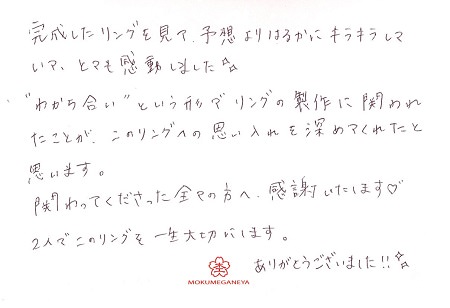 完成したリングを見て、予想よりはるかにキラキラして
いて、とても感動しました☆☆
"わかち合い"という形でリングの製作に関われ
たことが、このリングへの思い入れを深めてくれたと
思います。
関わってくださった全ての方へ、感謝いたします♡
2人でこのリングを一生大切にします。
ありがとうございました!!☆☆
MOKUMEGANEYA